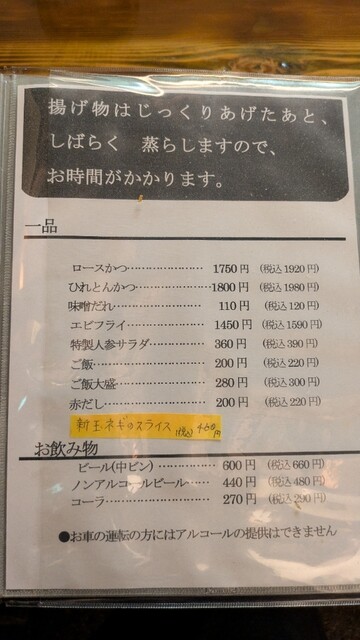 揚げ物はじっくりあげたあと、
しばらく　蒸らしますので、
お時間がかかります。
一品
ロースかつ……………… 1750円 (税込1920円)
ひれとんかつ……………1800円 (税込1980円)
味噌だれ………………… 110円 (税込120円)
エビフライ……………… 1450円 (税込1590円)
特製人参サラダ………… 360円 (税込390円)
ご飯……………………… 200円 (税込220円)
ご飯大盛………………… 280円 (税込300円)
赤だし…………………… 200円 (税込220円)
新玉ネギのスライス (税込) 400円
お飲み物
ビール(中ビン)………… 600円 (税込660円)
ノンアルコールビール…… 440円 (税込480円)
コーラ…………………… 270円 (税込290円)
●お車の運転の方にはアルコールの提供はできません